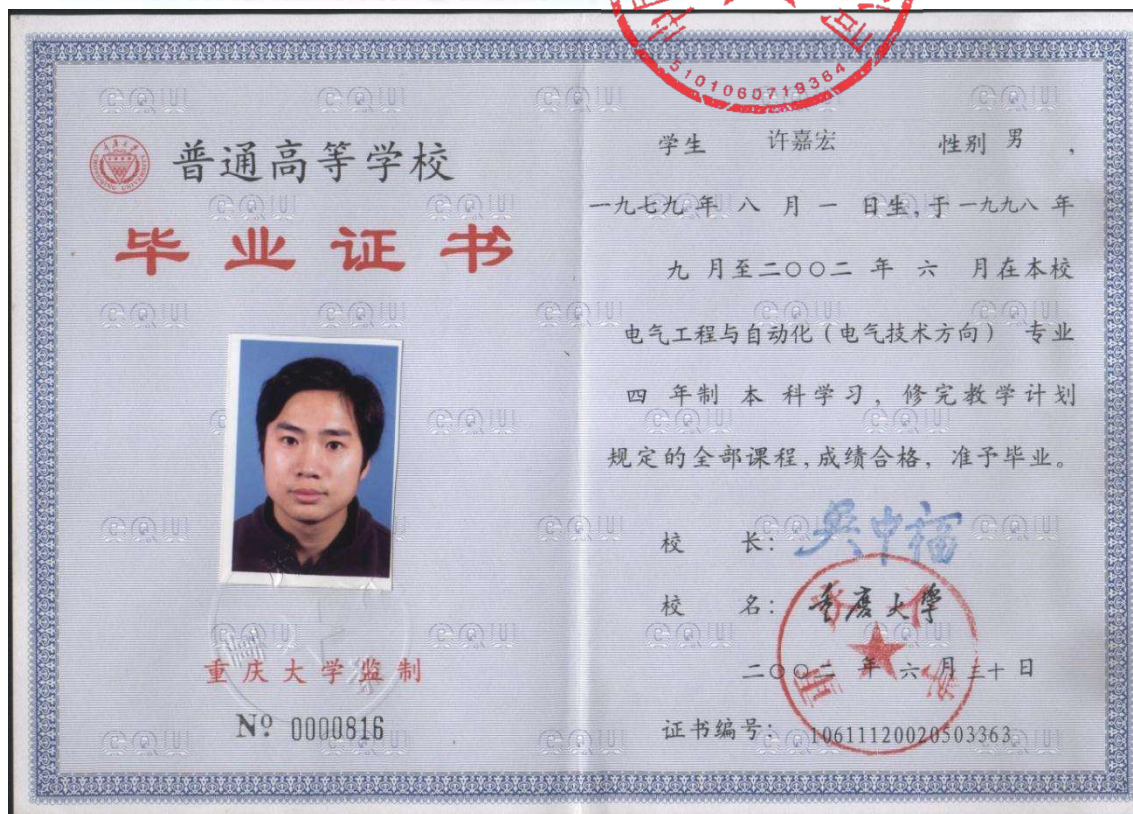 5101060719384
普通高等学校
毕业证书
重庆大学监制
Nº 0000816
学生 许嘉宏 性别 男 ,
一九七九 年 八 月 一 日生,于 一九九八 年
九 月至二〇〇二 年 六 月在本校
电气工程与自动化（电气技术方向） 专业
四 年制 本 科学习，修完教学计划
规定的全部课程,成绩合格，准予毕业。
校 长: 吴中福
校 名: 重庆大学
二〇〇二 年 六 月 三十 日
证书编号: 10611120020503363